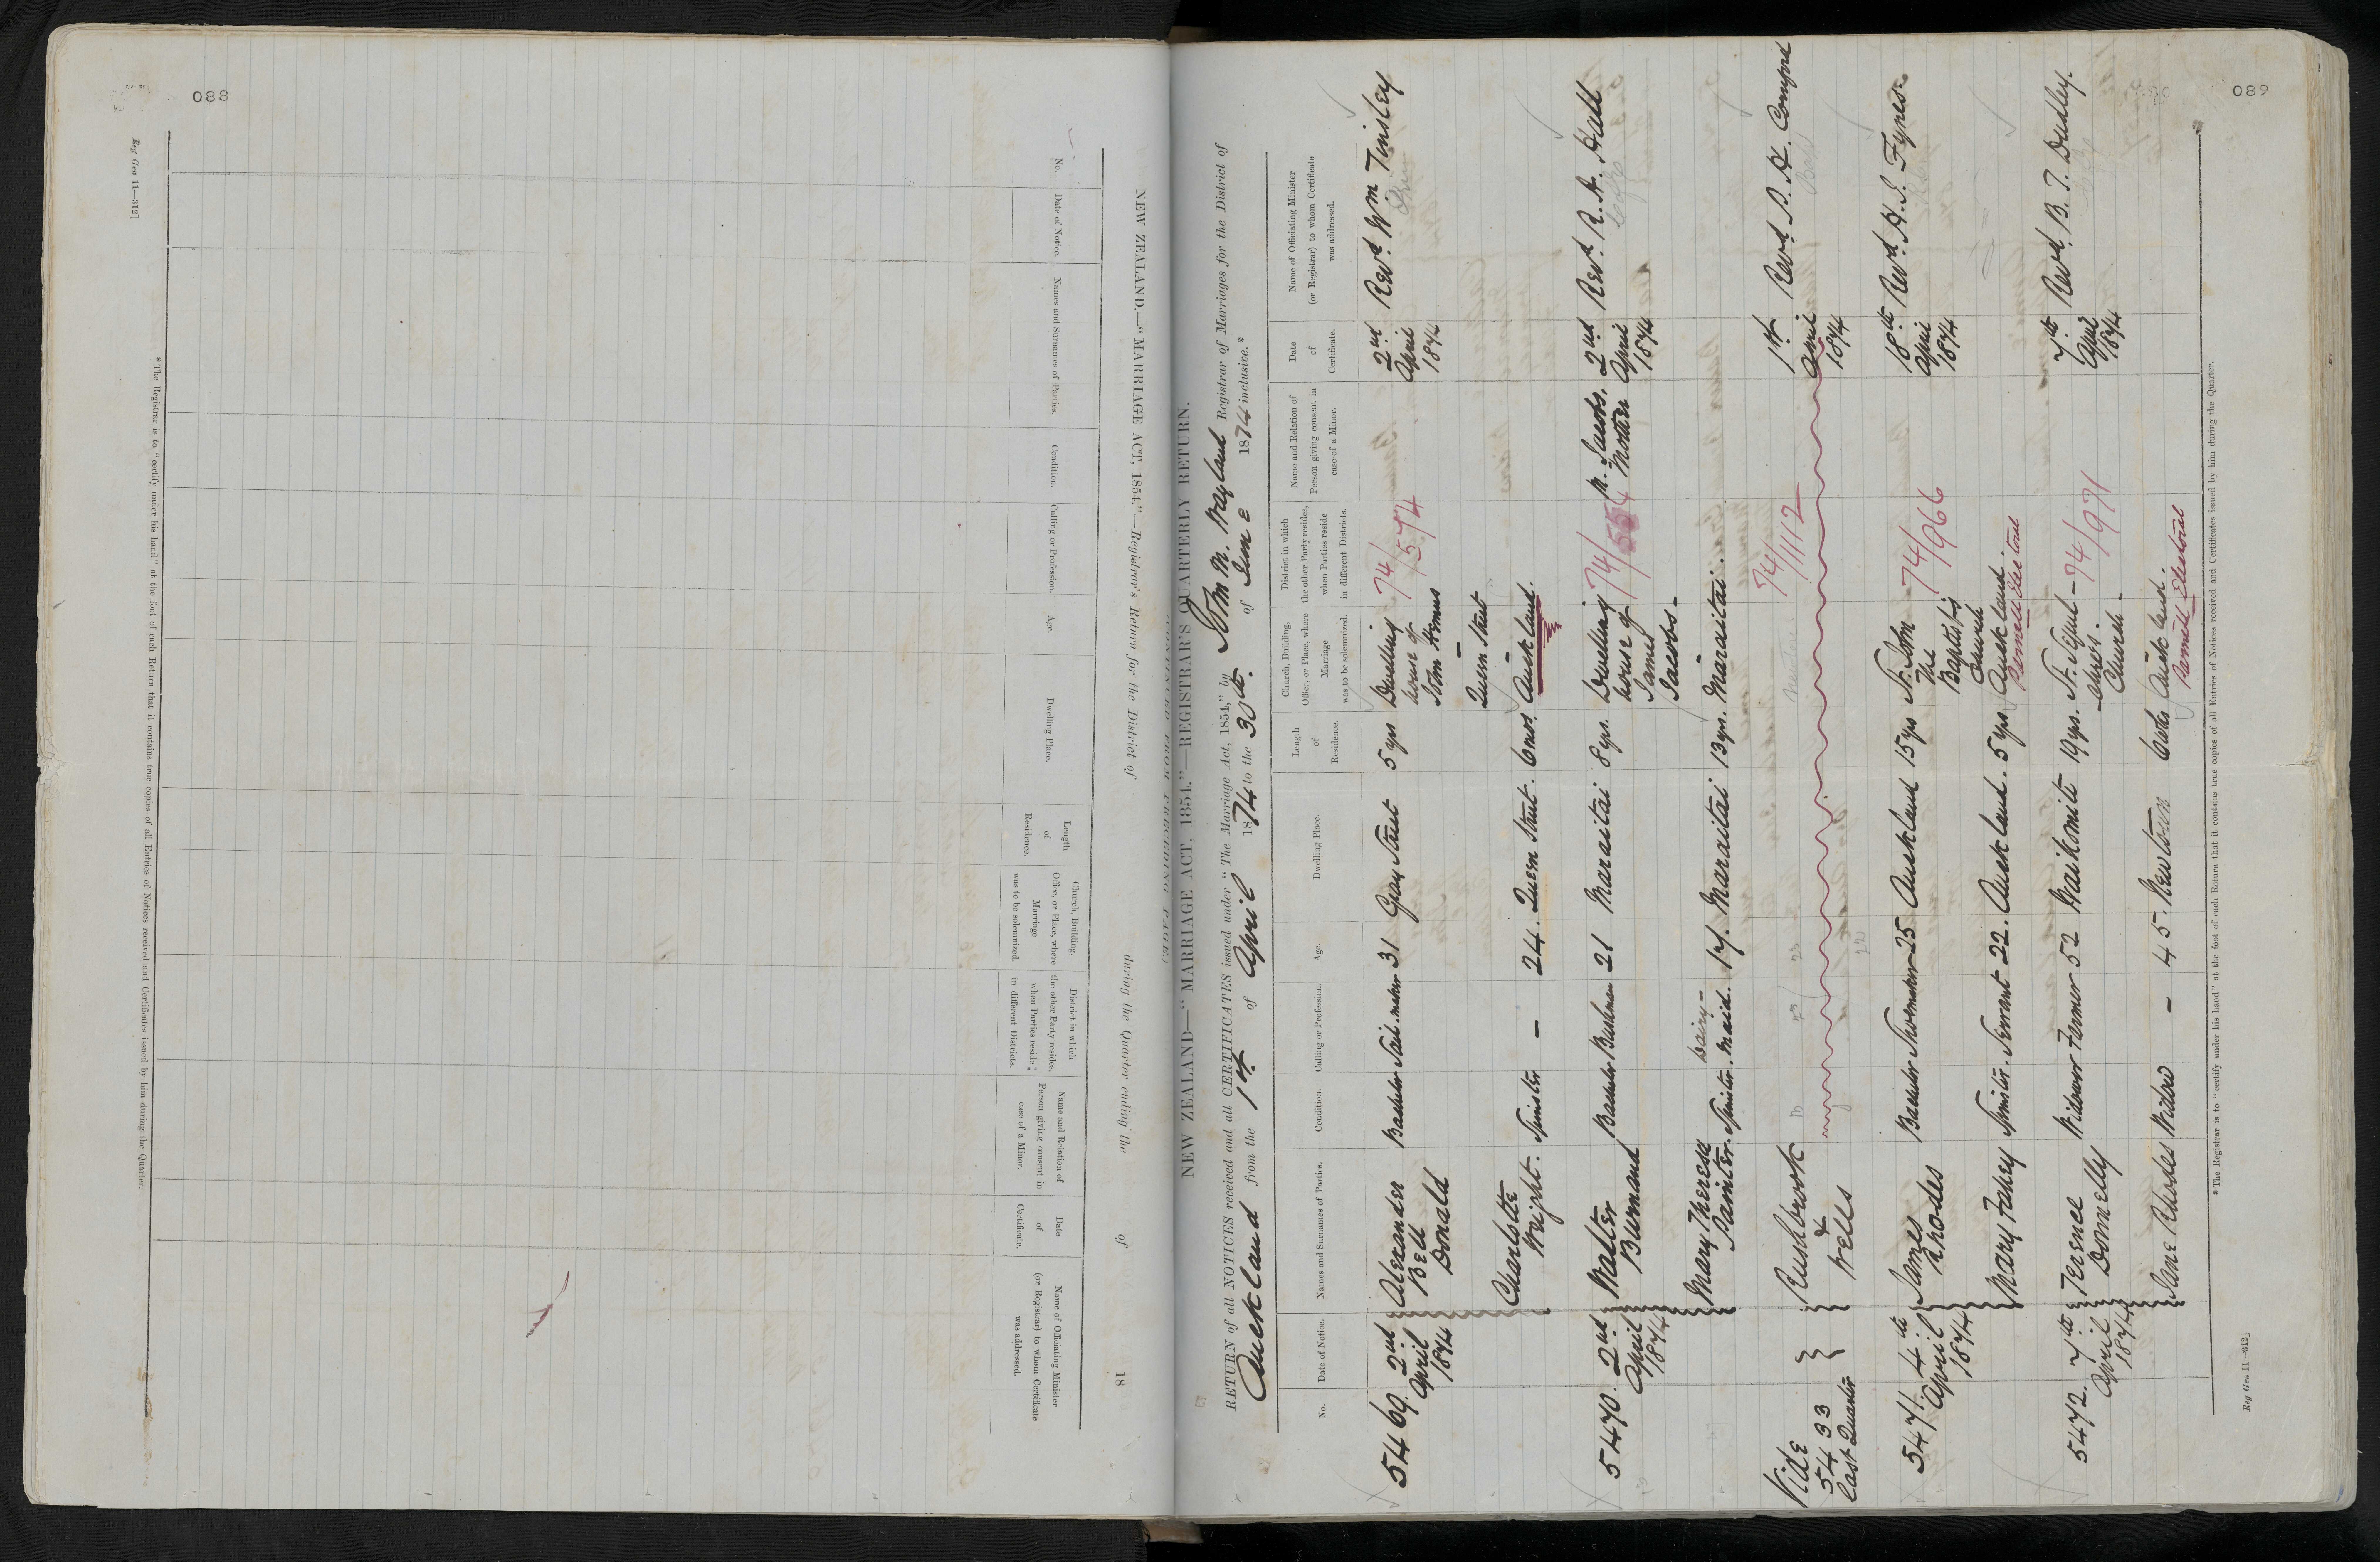 088
Reg Gen 11—312]
NEW ZEALAND.—"MARRIAGE ACT, 1854."—Registrar's Return for the District of during the Quarter ending the of 18
No.
Date of Notice.
Names and Surnames of Parties.
Condition.
Calling or Profession.
Age.
Dwelling Place.
Length
of
Residence.
Church, Building,
Office, or Place, where
Marriage
was to be solemnized.
District in which
the other Party resides,
when Parties reside
in different Districts.
Name and Relation of
Person giving consent in
case of a Minor.
Date
of
Certificate.
Name of Officiating Minister
(or Registrar) to whom Certificate
was addressed.
* The Registrar is to "certify under his hand" at the foot of each Return that it contains true copies of all Entries of Notices received and Certificates issued by him during the Quarter.
089
NEW ZEALAND—"MARRIAGE ACT, 1854."—REGISTRAR'S QUARTERLY RETURN.
RETURN of all NOTICES received and all CERTIFICATES issued under "The Marriage Act, 1854," by John M. Wayland Registrar of Marriages for the District of
Auckland from the 1st of April 1874 to the 30th. of June 1874 inclusive.*
No.
Date of Notice.
Names and Surnames of Parties.
Condition.
Calling or Profession.
Age.
Dwelling Place.
Length
of
Residence.
Church, Building,
Office, or Place, where
Marriage
was to be solemnized.
District in which
the other Party resides,
when Parties reside
in different Districts.
Name and Relation of
Person giving consent in
case of a Minor.
Date
of
Certificate.
Name of Officiating Minister
(or Registrar) to whom Certificate
was addressed.
5469. 2nd April 1874 Alexander Bell Donald Bachelor Sail-maker 31 Gray Street 5 yrs Dwelling house of John Homus Queen Street Auckland. 74/574 2nd April 1874 Revd. Wm Tinsley
Charlotte Wright. Spinster — 24. Queen Street. 6 mos.
5470. 2nd April 1874 Walter Burmand Bachelor Bushman 21 Maraitai 8 yrs. Dwelling house of James Jacobs— Maraitai. 74/554 M. Jacobs. Mother 2nd April 1874 Revd. R. H. Hall
Mary Theresa Painter. Spinster. Dairy-Maid. 17. Maraitai 13 yrs.
Vide 5433 last Quarter Rushbrook & Wells 74/1112 1st April 1874 Revd. B. H.
5471. 4th April 1874 James Rhodes Bachelor Shoemaker 25 Auckland 15 yrs St. John the Baptist's Church Auckland. 74/966 18th April 1874 Revd. H. J. Fynes.
Mary Fahey Spinster. Servant 22. Auckland. 5 yrs
5472. 7th April 1874 Terence Donnelly Widower Farmer 52 Waikomiti 19 yrs. St. Sepulchres. Church— Auckland. 74/971 7th April 1874 Revd. B. T. Dudley.
Parnell Electoral
Jane Rhodes Widow — 45. Newtown
* The Registrar is to "certify under his hand" at the foot of each Return that it contains true copies of all Entries of Notices received and Certificates issued by him during the Quarter.
Reg Gen 11—312]